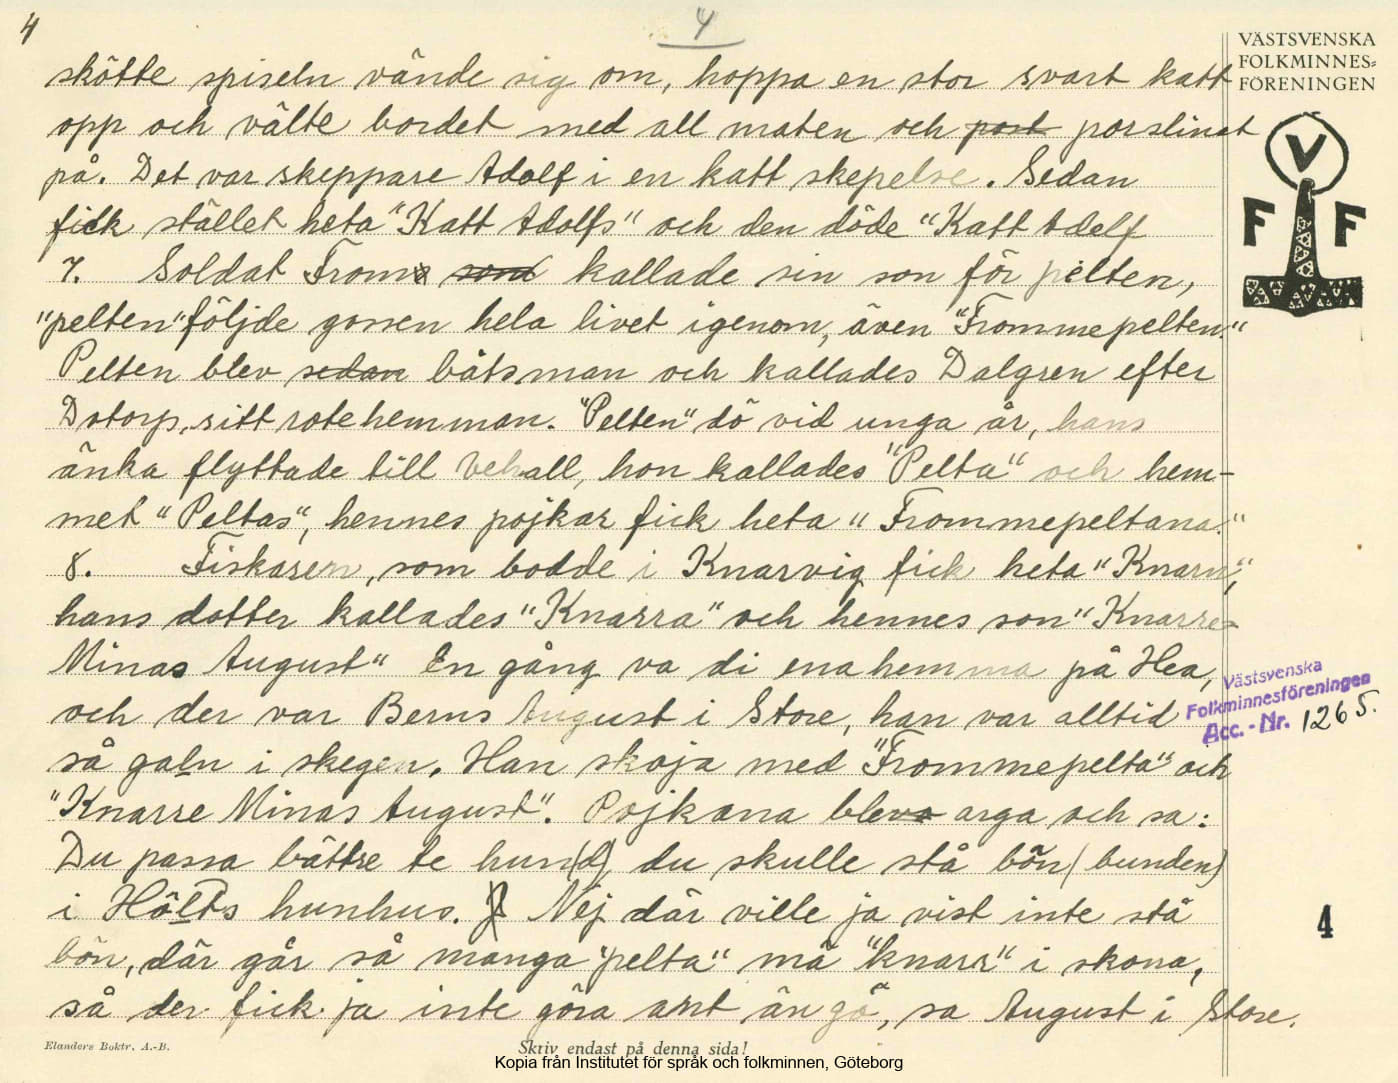 4
4
VÄSTSVENSKA
FOLKMINNES=
FÖRENINGEN
V
F F
skötte spiseln vände sig om, hoppa en stor svart katt
opp och välte bordet med all maten och post porslinet
på. Det var skeppare Adolf i en katt skepelse. Sedan
fick stället heta "Katt Adolfs" och den döde "Katt Adolf
7. Soldat From som kallade sin son för pelten,
"pelten" följde gossen hela livet igenom, även "Frommepelten."
Pelten blev sedan båtsman och kallades Dalgren efter
Dotorp, sitt rotehemman. "Pelten" dö vid unga år, hans
änka flyttade till Vehall, hon kallades "Pelta" och hem-
met "Peltas", hennes pojkar fick heta "Frommepeltana."
8. Fiskaren, som bodde i Knarvig fick heta "Knarn",
hans dotter kallades "Knarra" och hennes son "Knarre-
Minas August" En gång va di ena hemma på Hea,
och der var Berns August i Store, han var alltid
så galn i skegen. Han skoja med "Frommepelta" och
"Knarre Minas August". Pojkana bleva arga och sa:
Du passa bättre te hun(d), du skulle stå bön (bunden)
i Hölts hunhus. Nej där ville ja vist inte stå
bön, där går så manga "pelta" må "knarr" i skona,
så der fick ja inte göra ant än gö, sa August i Store.
Västsvenska
Folkminnesföreningen
Acc.-Nr. 1265.
4
Elanders Boktr. A.-B.
Skriv endast på denna sida!
Kopia från Institutet för språk och folkminnen, Göteborg